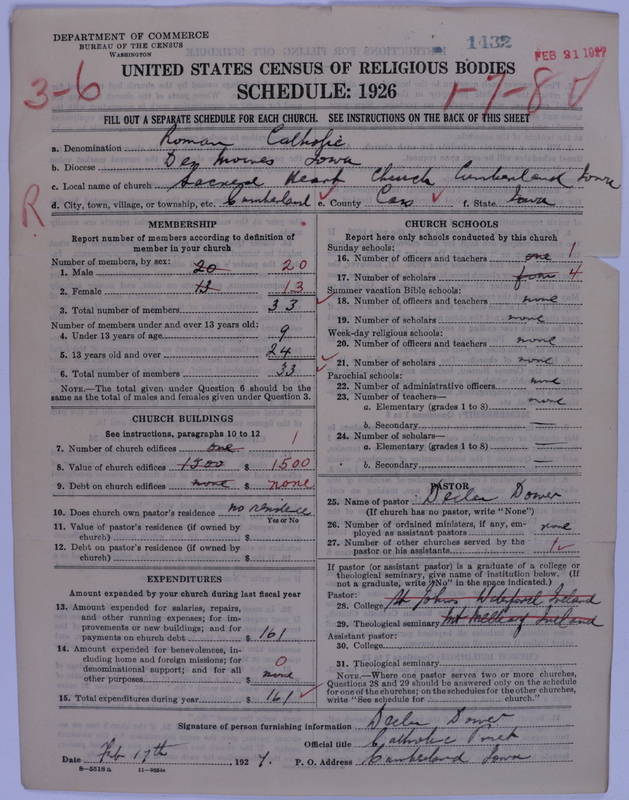 DEPARTMENT OF COMMERCE
BUREAU OF THE CENSUS
WASHINGTON
1432
FEB 21 1927
UNITED STATES CENSUS OF RELIGIOUS BODIES
SCHEDULE: 1926
3-6
1-7-8
FILL OUT A SEPARATE SCHEDULE FOR EACH CHURCH. SEE INSTRUCTIONS ON THE BACK OF THIS SHEET
a. Denomination Roman Catholic
b. Diocese Des Moines Iowa
c. Local name of church Sacred Heart Church Cumberland Iowa
R
d. City, town, village, or township, etc. Cumberland e. County Cass f. State Iowa
MEMBERSHIP
Report number of members according to definition of
member in your church
Number of members, by sex:
1. Male 20 20
2. Female 13 13
3. Total number of members 33
Number of members under and over 13 years old:
4. Under 13 years of age 9
5. 13 years old and over 24
6. Total number of members 33
NOTE.—The total given under Question 6 should be the
same as the total of males and females given under Question 3.
CHURCH BUILDINGS
See instructions, paragraphs 10 to 12
7. Number of church edifices one 1
8. Value of church edifices 1500 $ 1500
9. Debt on church edifices none $ none
10. Does church own pastor's residence no residence
Yes or No
11. Value of pastor's residence (if owned by
church) $
12. Debt on pastor's residence (if owned by
church) $
EXPENDITURES
Amount expended by your church during last fiscal year
13. Amount expended for salaries, repairs,
and other running expenses; for im-
provements or new buildings; and for
payments on church debt $ 161
14. Amount expended for benevolences, in-
cluding home and foreign missions; for
denominational support; and for all
other purposes $ none 0
15. Total expenditures during year $ 161
CHURCH SCHOOLS
Report here only schools conducted by this church
Sunday schools:
16. Number of officers and teachers one 1
17. Number of scholars four 4
Summer vacation Bible schools:
18. Number of officers and teachers none
19. Number of scholars none
Week-day religious schools:
20. Number of officers and teachers none
21. Number of scholars none
Parochial schools:
22. Number of administrative officers none
23. Number of teachers—
a. Elementary (grades 1 to 8) none
b. Secondary —
24. Number of scholars—
a. Elementary (grades 1 to 8) —
b. Secondary —
PASTOR
25. Name of pastor Declan Dower
(If church has no pastor, write "None")
26. Number of ordained ministers, if any, em-
ployed as assistant pastors none
27. Number of other churches served by the
pastor or his assistants 1
If pastor (or assistant pastor) is a graduate of a college or
theological seminary, give name of institution below. (If
not a graduate, write "No" in the space indicated.)
Pastor:
28. College St Johns Waterford Ireland
29. Theological seminary Mt Melleray Ireland
Assistant pastor:
30. College
31. Theological seminary
NOTE.—Where one pastor serves two or more churches,
Questions 28 and 29 should be answered only on the schedule
for one of the churches; on the schedules for the other churches,
write "See schedule for church."
Signature of person furnishing information Declan Dower
Official title Catholic Priest
Date Feb 17th, 1927. P. O. Address Cumberland Iowa
8—5518a 11—9854